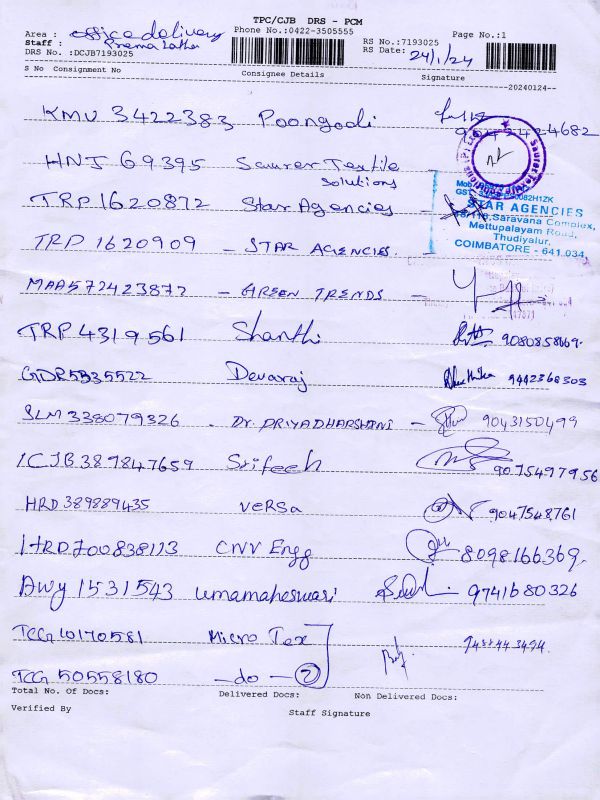 TPC/CJB DRS - PCM
Area : office delivery Phone No.:0422-3505555 RS No.:7193025 Page No.:1
Staff : Prema Latha RS Date: 24/1/24
DRS No. :DCJB7193025
S No Consignment No Consignee Details Signature
20240124
KMU 3422383 Poongodi
HNJ 69395 Saurer Textile
Solutions
TRP 1620872 Star Agencies
STAR AGENCIES
Saravana Complex,
Mettupalayam Road,
Thudiyalur,
COIMBATORE - 641 034
TRP 1620909 - STAR AGENCIES.
MAA572423872 - GREEN TRENDS -
TRP 4319561 Shanthi 9080858669.
GDR5535522 Devaraj 9442368303
SLM 338079326 - Dr. PRIYADHARSHINI - 9043150499
ICJB389847659 9075497956
HRD 389889435 Versa 9047548761
HRD700838113 CNV Engg 8098166369.
Awy 1531543 umamaheswari 9741680326
TCG 10170581 Micro Tex
TCG 50558180 - do - 2
Total No. Of Docs: Delivered Docs: Non Delivered Docs:
Verified By Staff Signature